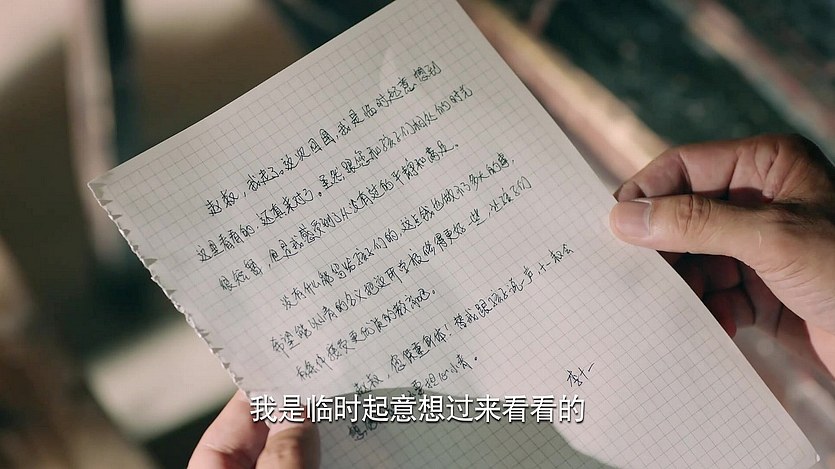 赵叔，我走了。这次回国，我是临时起意想到
这里看看的，还真来对了。虽然跟您和孩子们相处的时光
很短暂，但是我感受到了从没有过的平静和满足。
没有什么能留给孩子们的，这点钱也做不了多大的事，
希望能以小青的名义把这所学校修得更好一些，让孩子们
有条件接受更优质的教育吧。
赵叔，您保重身体！替我跟孩子说一声，十一叔会
想
担心小青。
李十一
我是临时起意想过来看看的